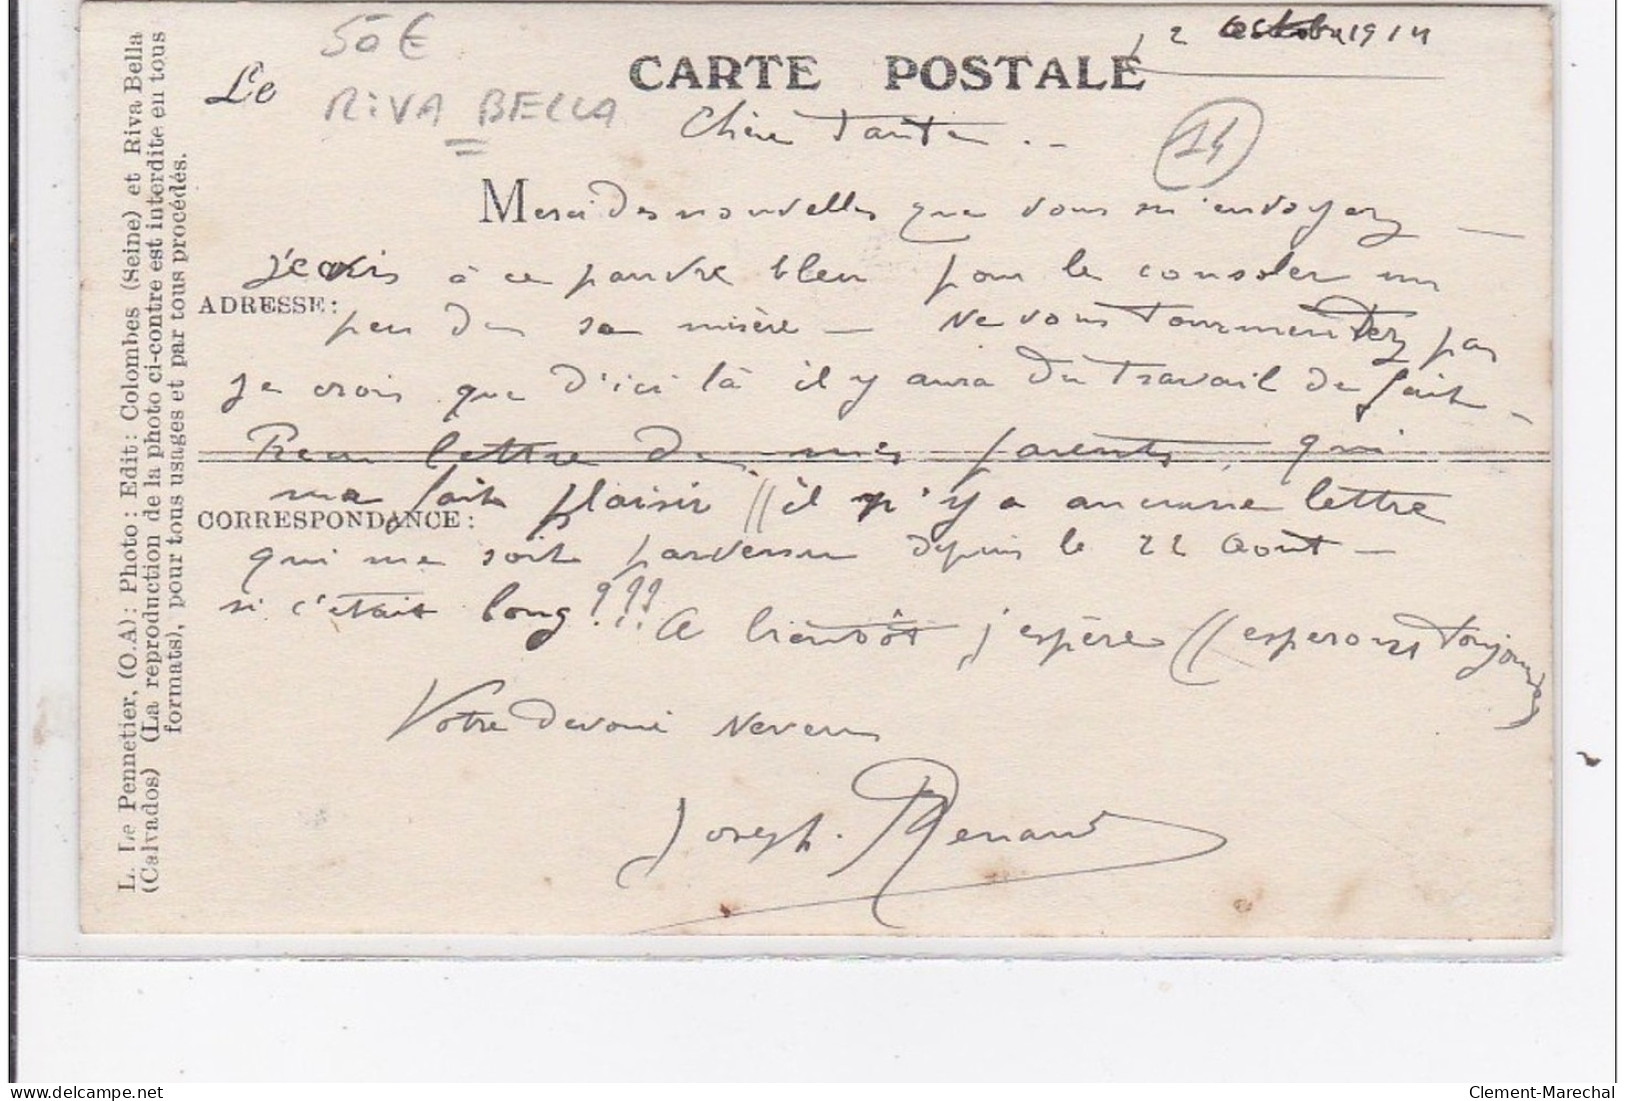 2 Octobre 1914
50€
Le
CARTE POSTALE
RIVA BELLA
14
Chère Tante ..
Merci des nouvelles que vous m'envoyez —
j'écris à ce pauvre bleu pour le consoler un
ADRESSE:
peu de sa misère — Ne vous tourmentez pas
je crois que d'ici là il y aura du travail de fait —
Reçu lettre de mes parents, qui
m'a fait plaisir // il n'y a aucune lettre
CORRESPONDANCE:
qui me soit parvenu depuis le 22 Août —
si c'était long !!! A bientôt j'espère ((esperons toujours)
Votre devoué neveu
Joseph. Renaud
L. Le Pennetier, (O.A): Photo: Edit: Colombes (Seine) et Riva Bella
(Calvados) (La reproduction de la photo ci-contre est interdite en tous
formats), pour tous usages et par tous procédés.
delcampe.net
Clement-Marechal